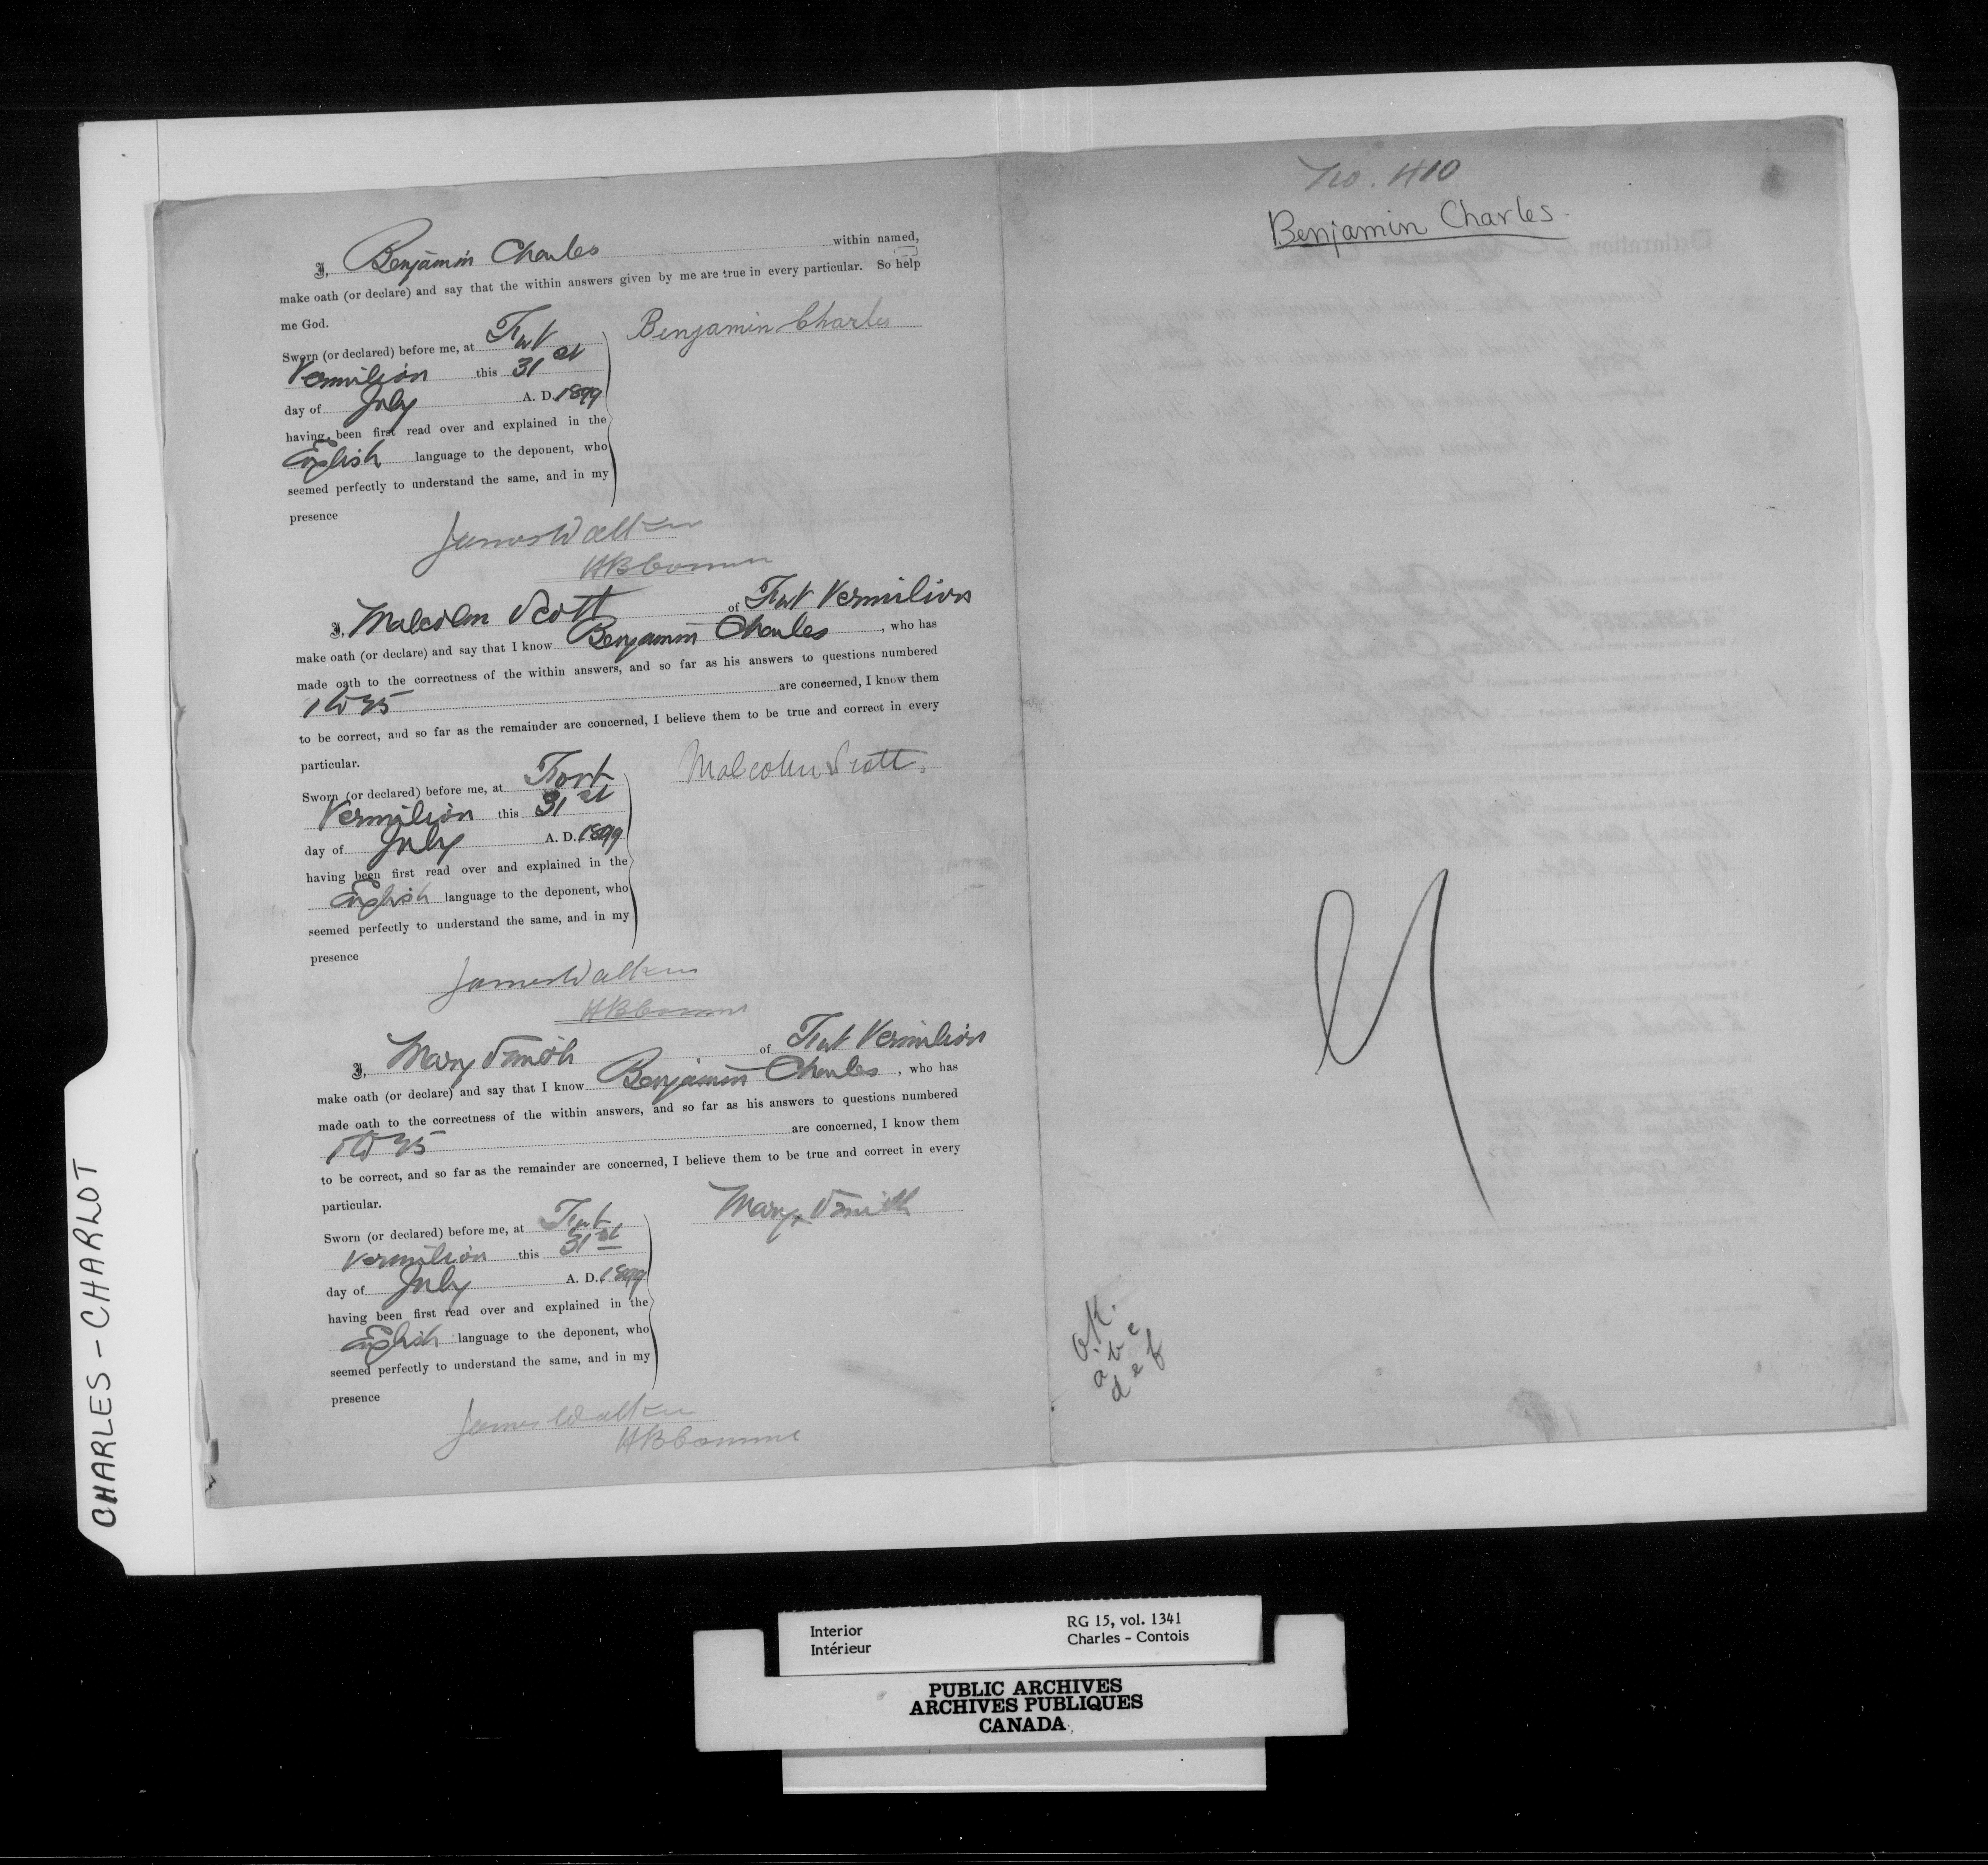 I, Benjamin Charles within named,
make oath (or declare) and say that the within answers given by me are true in every particular. So help
me God.
Sworn (or declared) before me, at Fort
Vermilion this 31st
day of July A. D. 1899
having been first read over and explained in the
English language to the deponent, who
seemed perfectly to understand the same, and in my
presence
Benjamin Charles
James Walker
HB Comm
I, Malcolm Scott of Fort Vermilion
make oath (or declare) and say that I know Benjamin Charles, who has
made oath to the correctness of the within answers, and so far as his answers to questions numbered
1 to 35 are concerned, I know them
to be correct, and so far as the remainder are concerned, I believe them to be true and correct in every
particular.
Sworn (or declared) before me, at Fort
Vermilion this 31st
day of July A. D. 1899
having been first read over and explained in the
English language to the deponent, who
seemed perfectly to understand the same, and in my
presence
Malcolm Scott,
James Walker
HB Comm
I, Mary Smith of Fort Vermilion
make oath (or declare) and say that I know Benjamin Charles, who has
made oath to the correctness of the within answers, and so far as his answers to questions numbered
1 to 35 are concerned, I know them
to be correct, and so far as the remainder are concerned, I believe them to be true and correct in every
particular.
Sworn (or declared) before me, at Fort
Vermilion this 31st
day of July A. D. 1899
having been first read over and explained in the
English language to the deponent, who
seemed perfectly to understand the same, and in my
presence
Mary Smith
James Walker
HB Comm
No. 410
Benjamin Charles.
O.K.
a b c
d e f
CHARLES - CHARLOT
Interior
Intérieur
RG 15, vol. 1341
Charles - Contois
PUBLIC ARCHIVES
ARCHIVES PUBLIQUES
CANADA